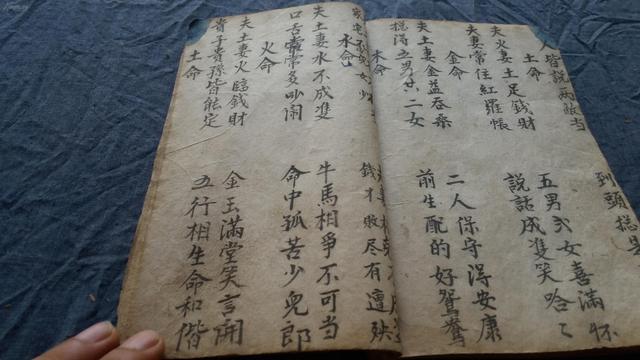 人皆說兩敵当 到頭總是
土命
夫火妻土足錢財 五男弍女喜滿怀
夫妻常住紅羅帳 說話成雙笑哈〻
金命
夫土妻金益吞桑 二人保守得安康
總得五男 二女 前生配的好鴛鴦
木命
錢才敗尽有遭殃
水命
夫土妻水不成雙 牛馬相爭不可当
口舌常常多吵闹 命中孤苦少兒郎
火命
夫土妻火臨錢財 金玉滿堂笑言開
貴子貴孫皆能定 五行相生命和偕
土命